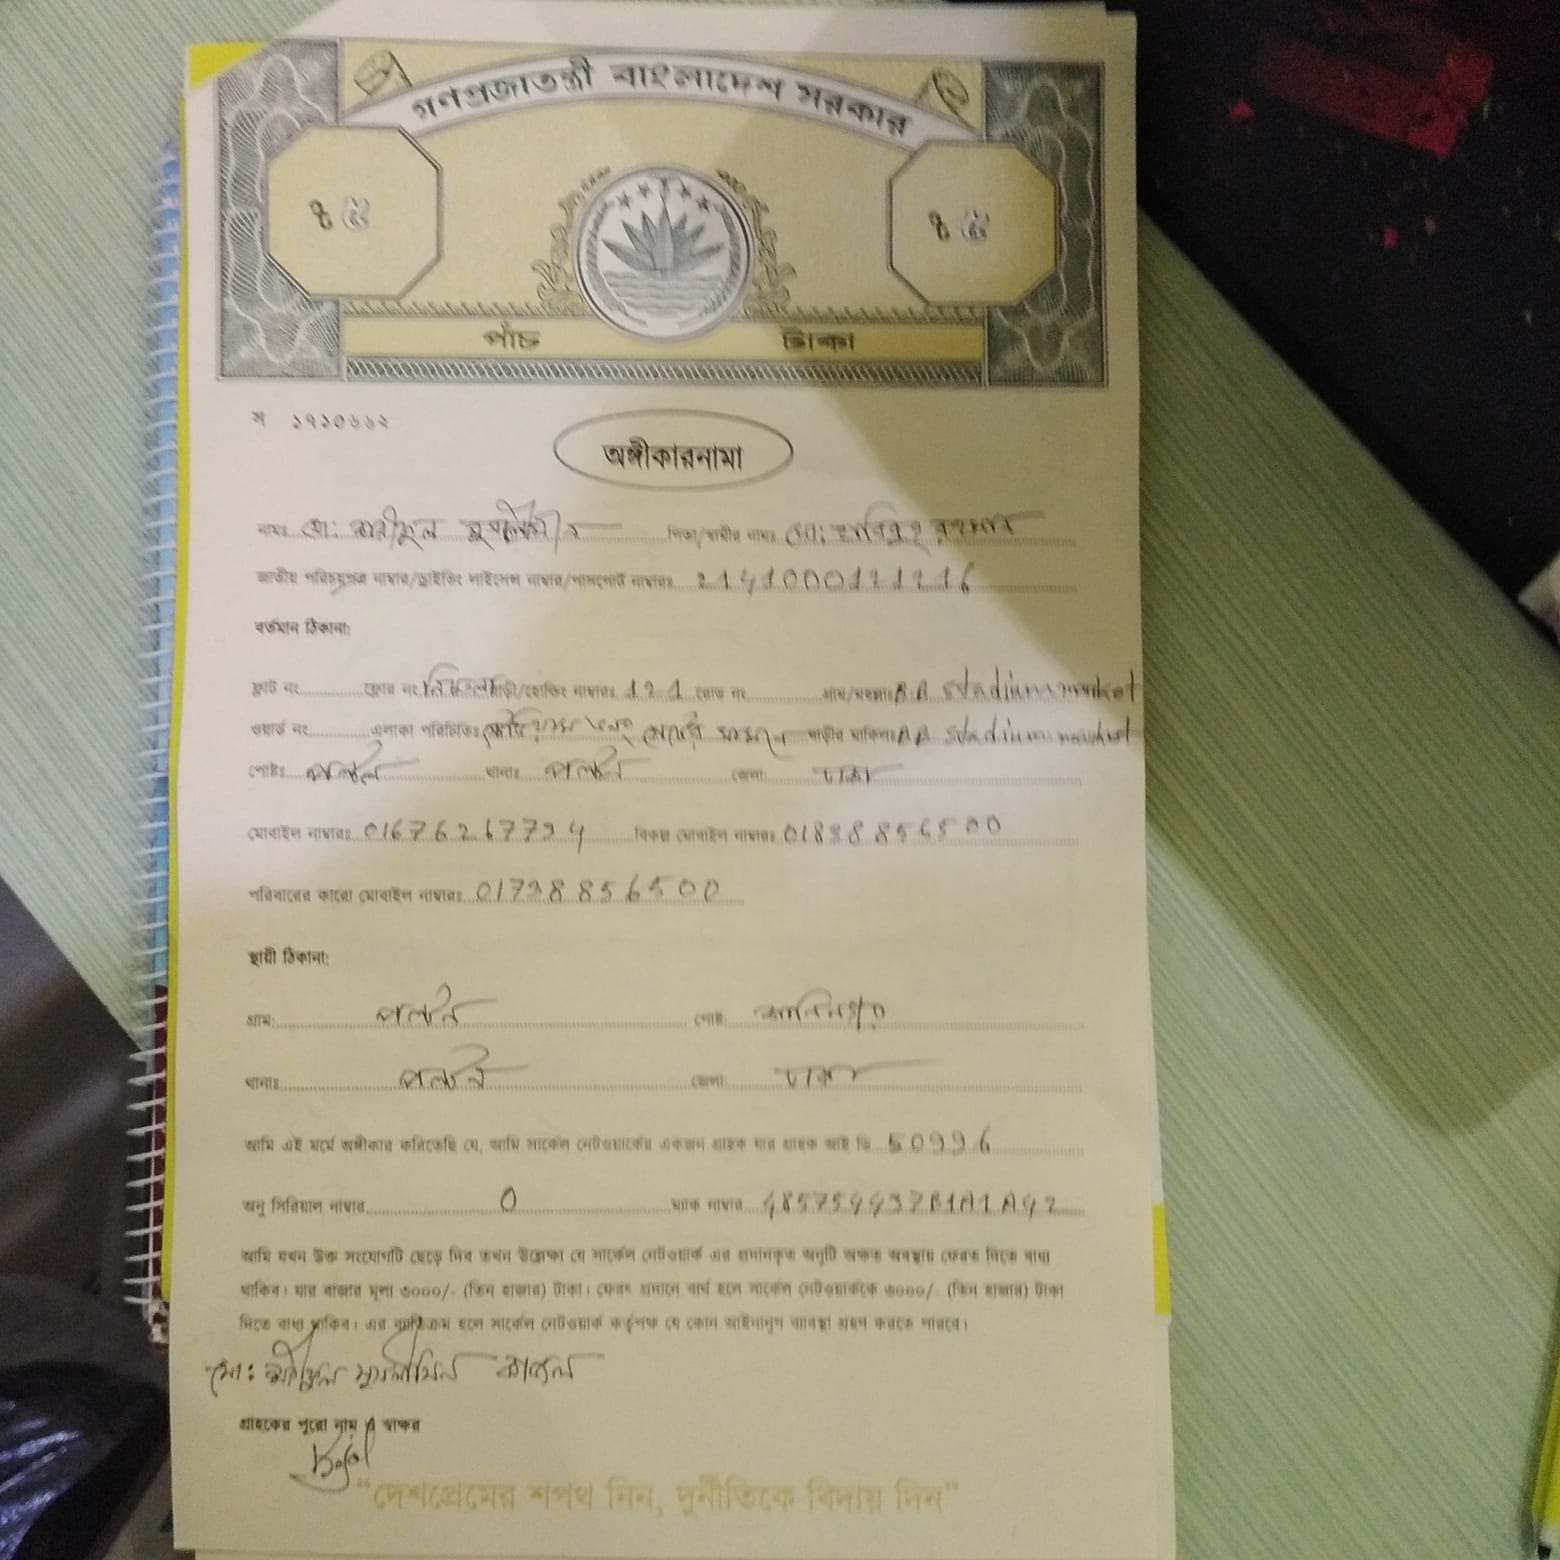 গণপ্রজাতন্ত্রী বাংলাদেশ সরকার
৳ ৫ ৳ ৫
পাঁচ টাকা
স ১৭১০৬৬২
অঙ্গীকারনামা
নামঃ মো: পিতা/স্বামীর নামঃ মো: হাবিবুর রহমান
জাতীয় পরিচয়পত্র নাম্বার/ড্রাইভিং লাইসেন্স নাম্বার/পাসপোর্ট নাম্বারঃ
বর্তমান ঠিকানা:
ফ্লাট নং ফ্লোর নং নিচতলা বাড়ী/হোল্ডিং নাম্বারঃ 121 রোড নং গ্রাম/মহল্লাঃ B.B stadium market
ওয়ার্ড নং এলাকা পরিচিতিঃ বাড়ীর মালিকঃ B.B stadium market
পোষ্টঃ পল্টন থানাঃ পল্টন জেলা: ঢাকা
মোবাইল নাম্বারঃ বিকল্প মোবাইল নাম্বারঃ
পরিবারের কারো মোবাইল নাম্বারঃ 01738856500
স্থায়ী ঠিকানা:
গ্রাম: পল্টন পোষ্ট:
থানাঃ পল্টন জেলা: ঢাকা
আমি এই মর্মে অঙ্গীকার করিতেছি যে, আমি সার্কেল নেটওয়ার্কের একজন গ্রাহক যার গ্রাহক আই ডি
অনু সিরিয়াল নাম্বার 0 ম্যাক নাম্বার
আমি যখন উক্ত সংযোগটি ছেড়ে দিব তখন উল্লেক্ষ্য যে সার্কেল নেটওয়ার্ক এর প্রদানকৃত অনুটি অক্ষত অবস্থায় ফেরত দিতে বাধ্য
থাকিব। যার বাজার মূল্য ৩০০০/- (তিন হাজার) টাকা। ফেরৎ প্রদানে ব্যর্থ হলে সার্কেল নেটওয়ার্ককে ৩০০০/- (তিন হাজার) টাকা
দিতে বাধ্য থাকিব। এর ব্যতিক্রম হলে সার্কেল নেটওয়ার্ক কর্তৃপক্ষ যে কোন আইনানুগ ব্যবস্থা গ্রহণ করতে পারবে।
মো: মুসলিমিন কাজল
গ্রাহকের পুরো নাম ও স্বাক্ষর
Kajol
“দেশপ্রেমের শপথ নিন, দুর্নীতিকে বিদায় দিন”